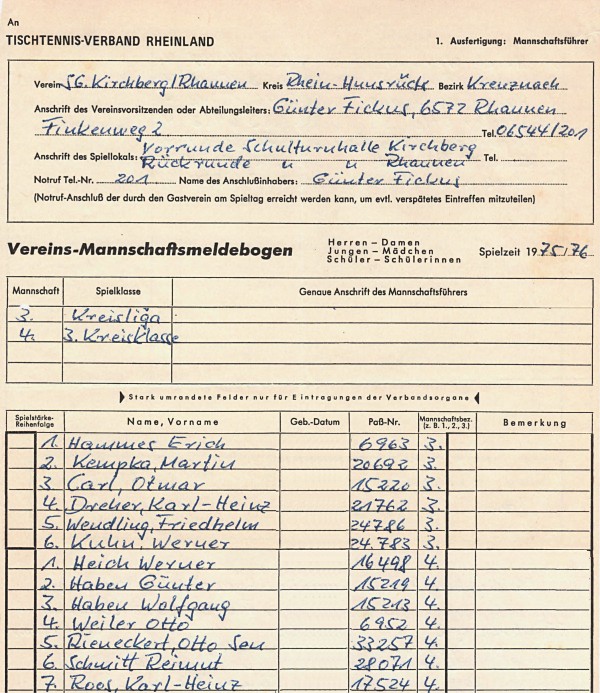 An
TISCHTENNIS-VERBAND RHEINLAND 1. Ausfertigung: Mannschaftsführer
Verein SG. Kirchberg/Rhaunen Kreis Rhein-Hunsrück Bezirk Kreuznach
Anschrift des Vereinsvorsitzenden oder Abteilungsleiters: Günter Fickus, 6572 Rhaunen
Finkenweg 2 Tel. 06544/201
Anschrift des Spiellokals: Vorrunde Schulturnhalle Kirchberg
Rückrunde " " Rhaunen Tel.
Notruf Tel.-Nr. 201 Name des Anschlußinhabers: Günter Fickus
(Notruf-Anschluß der durch den Gastverein am Spieltag erreicht werden kann, um evtl. verspätetes Eintreffen mitzuteilen)
Vereins-Mannschaftsmeldebogen Herren – Damen
Jungen – Mädchen
Schüler – Schülerinnen
Spielzeit 1975/76
Mannschaft Spielklasse Genaue Anschrift des Mannschaftsführers
3. Kreisliga
4. 3. Kreisklasse
Stark umrandete Felder nur für Eintragungen der Verbandsorgane
Spielstärke-Reihenfolge Name, Vorname Geb.-Datum Paß-Nr. Mannschaftsbez. (z. B. 1., 2., 3.) Bemerkung
1. Hammes Erich 6963 3.
2. Kempka, Martin 20692 3.
3. Carl, Otmar 15220 3.
4. Dreher, Karl-Heinz 21762 3.
5. Wendling, Friedhelm 24786 3.
6. Kuhn, Werner 24.783 3.
1. Heich Werner 16498 4.
2. Haben Günter 15219 4.
3. Haben Wolfgang 15213 4.
4. Weiler Otto 6952 4.
5. Rieneckert, Otto Sen 33257 4.
6. Schmitt Reimut 28071 4.
7. Roos, Karl-Heinz 17524 4.